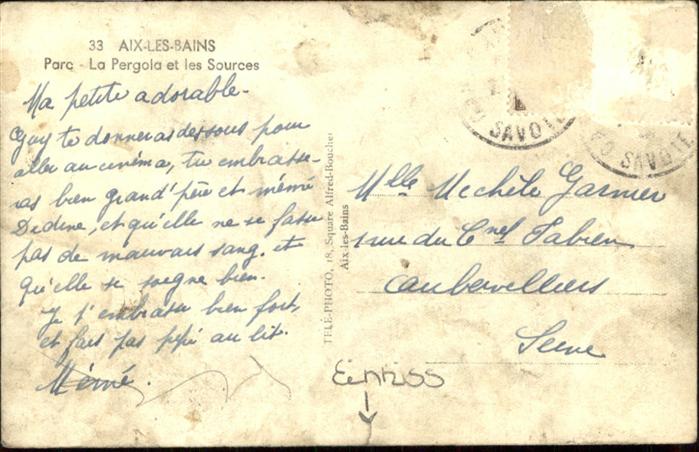 33 AIX-LES-BAINS
Parc - La Pergola et les Sources
Ma petite adorable-
Guy te donneras des sous pour
aller au cinéma, tu embrasse-
ras bien grand'père et mémé
Dedine, et qu'elle ne se fasse
pas de mauvais sang. et
qu'elle se soigne bien.
Je t'embrasse bien fort,
et fais pas pipi au lit.
Mémé.
TÉLÉ-PHOTO, 18, Square Alfred-Boucher
Aix-les-Bains
SAVOIE
SAVOIE
Mlle Michèle Garnier
rue du Cnel Fabien
Aubervilliers
Seine